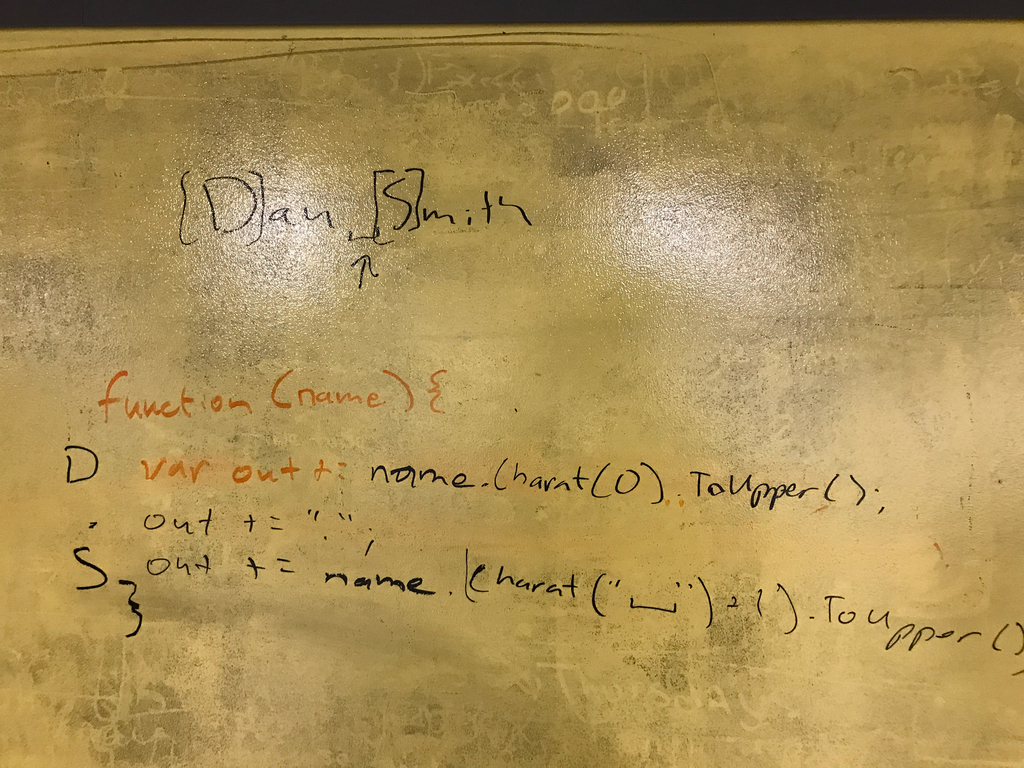 [D]an ⎵ [S]mith
↑
function (name) {
D var out += name.Charat(0).ToUpper();
. out += " ";
S out += name.(charat("⎵")+1).ToUpper()
}